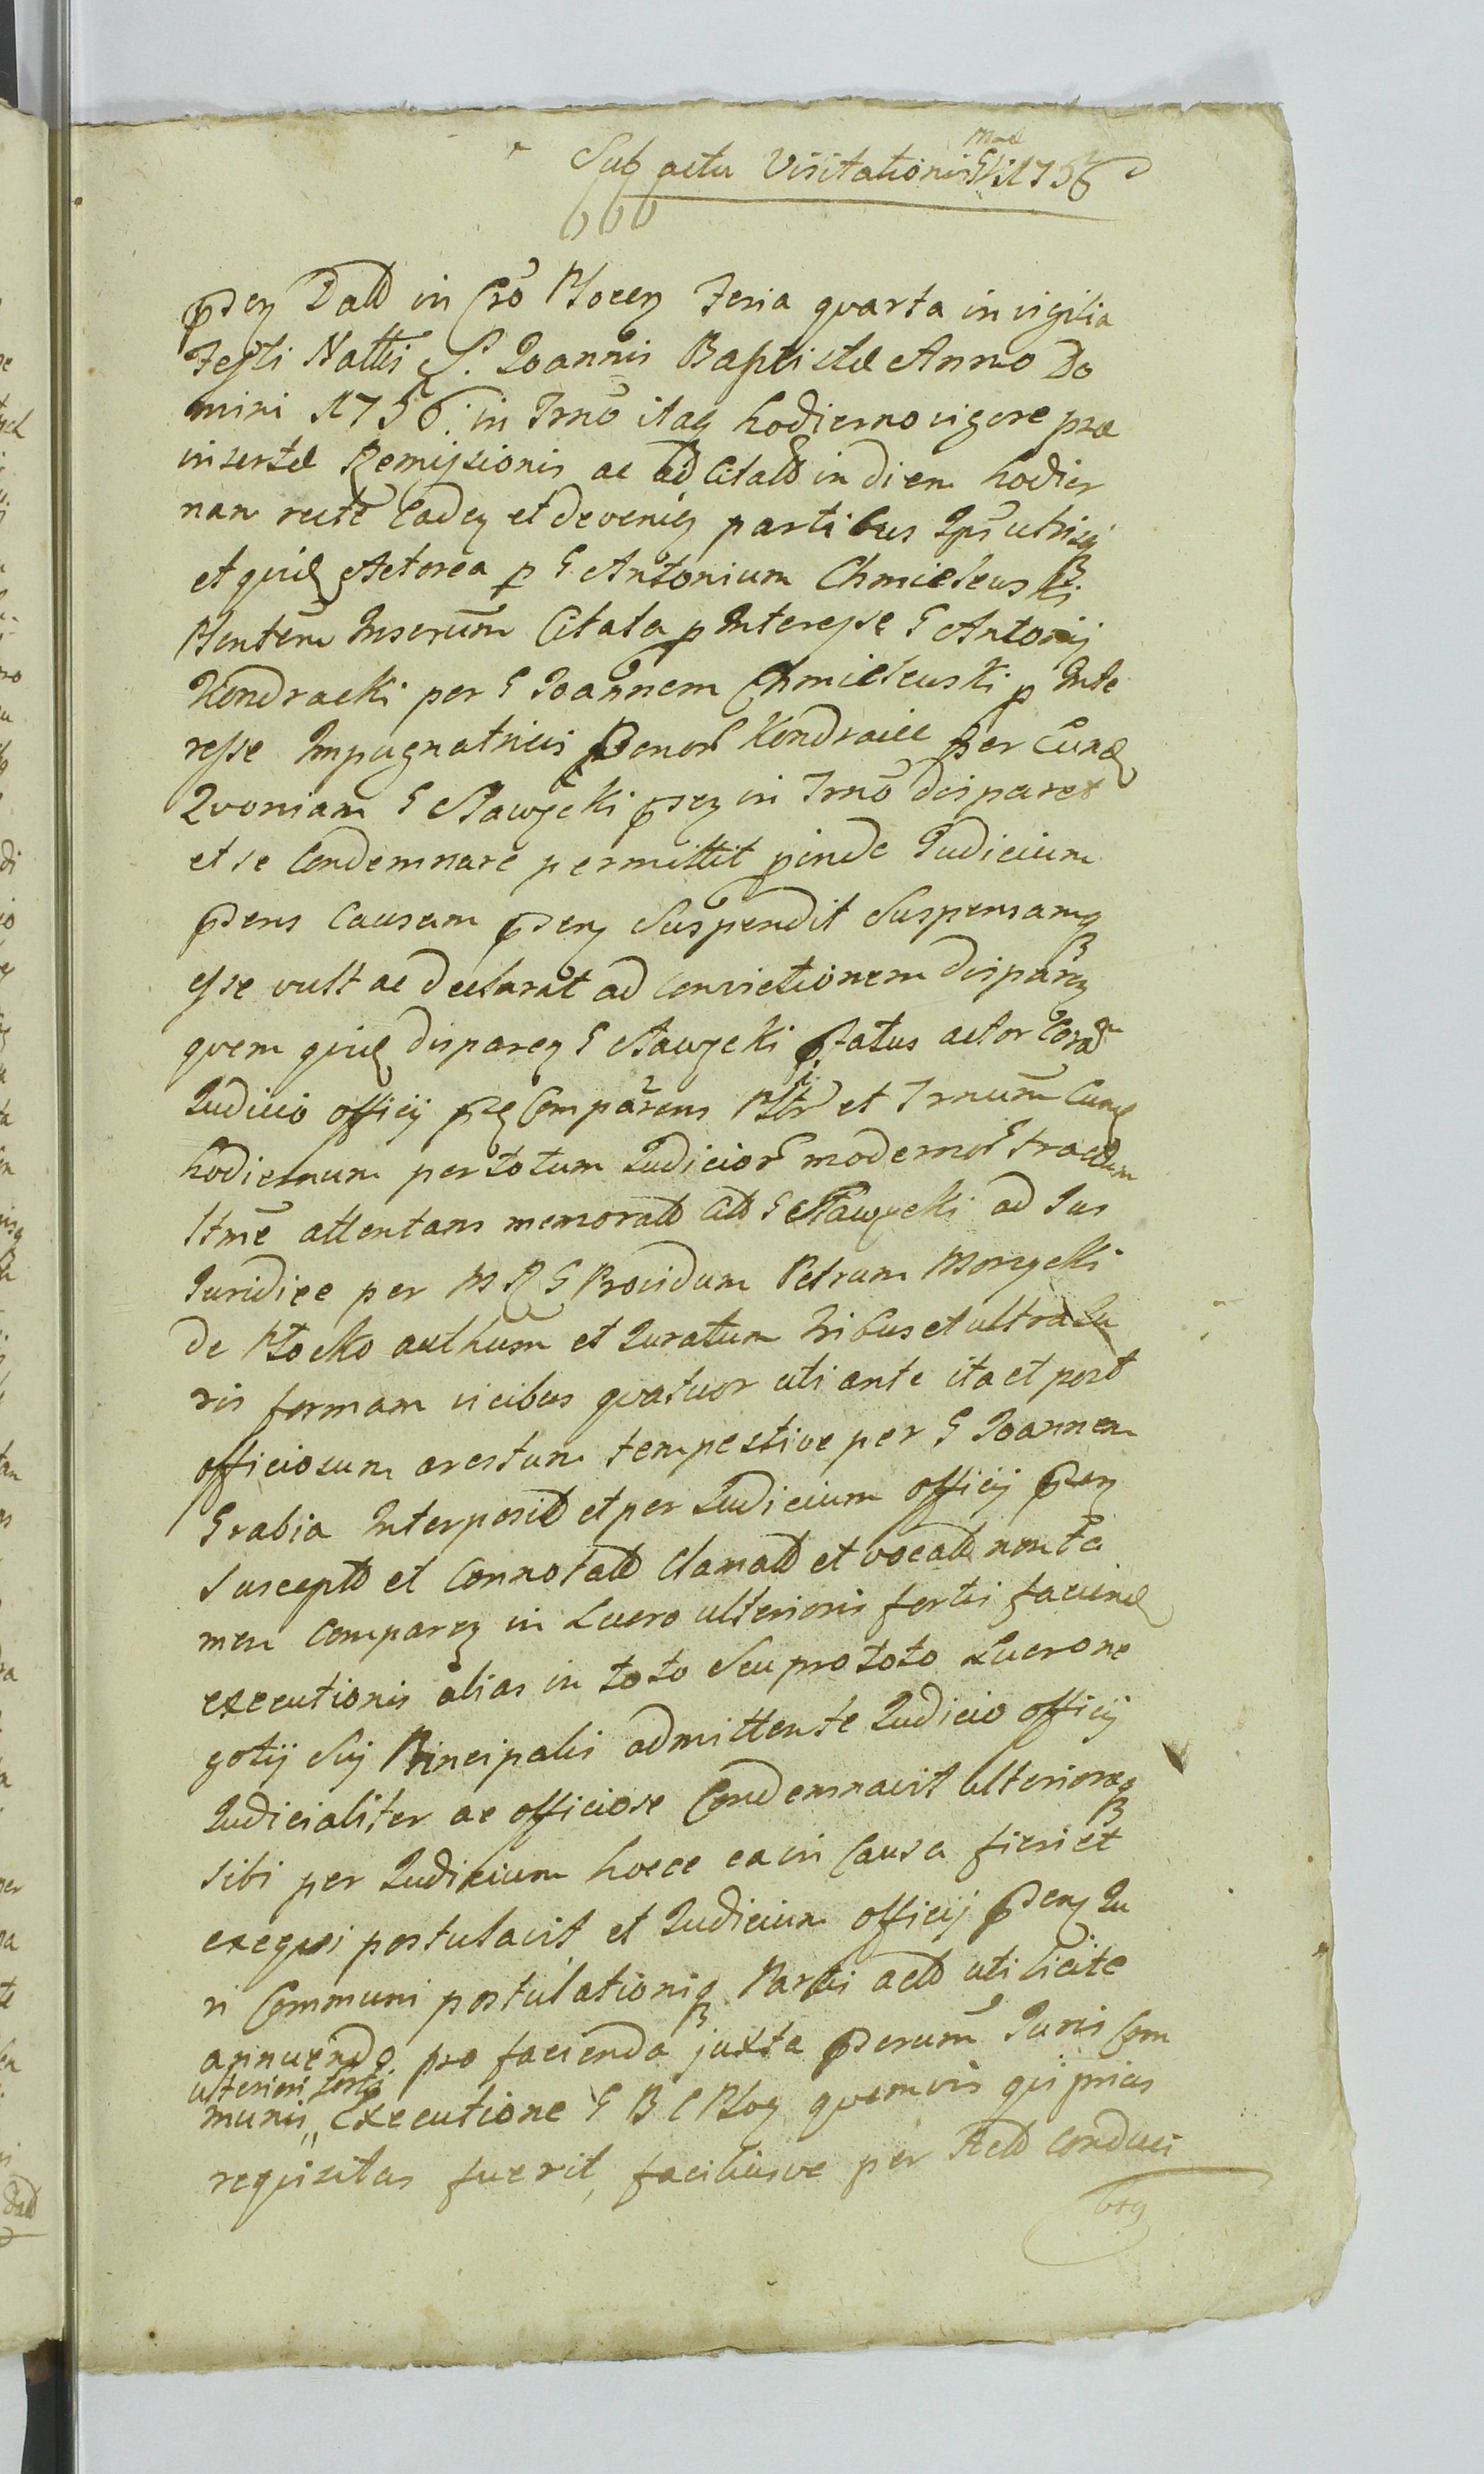 Sub actu Visitationis Gnli 1756
Mad
pns Datt in Cro Plocen Feria quarta in vigilia
Festi Nattis S. Joannis Baptistæ Anno Do
mini 1756. in Trno itaq hodierno vigore præ
insertæ Remissionis ac ad Citatt in diem hodier
nam recte Caden et devenien partibus Ipsis utrisq
et quid Actorea p G Antonium Chmielewski
Plentem Inserum Citata p Interesse G Antonij
Kendracki per G Joannem Chmielewski p Inte
resse Impugnatricis Bonor Kendraice per Eund
Quoniam G Sławęcki psen in Trno disparet
et se Condemnare permittit proinde Judicium
psens Causam psen Suspendit Suspensamq
esse vult ac declarat ad convictionem disparen
quem quid disparen G Sławęcki pfatus actor Cora
Judicio officij psen Comparens Pltr et Trnum Cund
hodiernum per totum Judicior modernor tractum
ltme attentans memoratt Citt G Sławęcki ad Jus
Juridice per M R G Providum Petrum Morzycki
de Płocko authum et Juratum tribus et ultra Ju
ris formam vicibus quatuor uti ante ita et post
officiosum arestum tempestive per G Joannem
Grabia Interposit et per Judicium officij psen
Suscept et Connotatt Clamatt et vocatt non ta
men Comparen in Lucro ulterioris fortis faciend
executionis alias in toto Seu pro toto Lucro ne
gotij Sui Principalis admittente Judicio officij
Judicialiter ac officiose Condemnavit ulterioraq
sibi per Judicium hocce ea in Causa fieri et
exequi postulavit et Judicium officij psen Ju
ri Communi postulationiq Partis actt uti licite
annuendo pro facienda juxta pserum Juris Com
ulteriori forti
munis Executione G B C Ploc quemvis qui prius
requisitus fuerit, faciliusve per Actt conduci